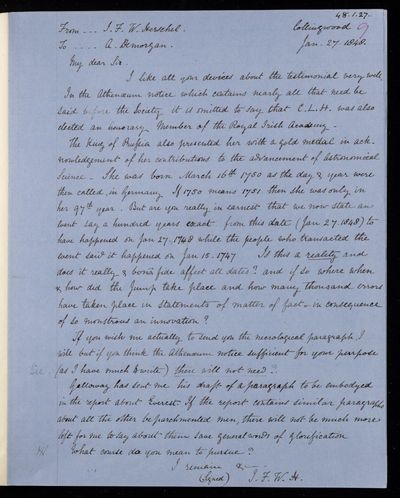 48.1.27.
From --- J. F. W. Herschel. Collingwood
To ---- A. Demorgan. Jan. 27. 1848.
My dear Sir.
I like all your devices about the testimonial very well
In the Athenæum notice which contains nearly all that need be
said before the Society it is omitted to say that C. L. H. was also
elected an honorary Member of the Royal Irish Academy -
The King of Prussia also presented her with a gold medal in ack-
nowledgement of her contributions to the advancement of Astronomical
Science - She was born March 16th 1750 as the day & year were
then called in Germany If 1750 means 1751 then she was only in
her 97th year. But are you really in earnest that we now state an
event say a hundred years exact from this date (Jan 27. 1848) to
have happened on Jan 27. 1748 while the people who transacted the
event said it happened on Jan 15. 1747 Is this a reality and
does it really & bonâ fide affect all dates? and if so where when
& how did the jump take place and how many thousand errors
have taken place in statements of matter of fact in consequence
of so monstrous an innovation?
If you wish me actually to send you the necrological paragraph I
will but if you think the Athenæum notice sufficient for your purpose
(as I have much to write) there will not need?
Sic
Galloway has sent me his draft of a paragraph to be embodied
in the report about Everest. If the report contains similar paragraphs
about all the other beparchmented men, there will not be much more
left for me to say about them save general words of glorification
What course do you mean to pursue?
I remain &c
(Signed) J. F. W. H.